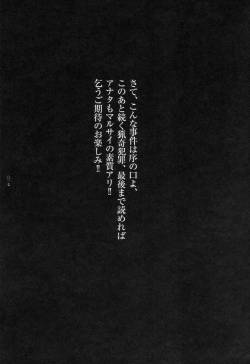 さて、こんな事件は序の口よ、
このあと続く猟奇犯罪、最後まで読めれば
アナタもマルサイの素質アリ!!
乞うご期待のお楽しみ!!